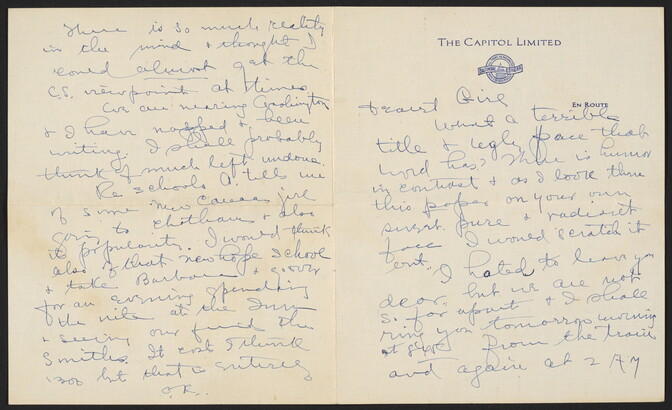 THE CAPITOL LIMITED
EN ROUTE
Dearest Girl
What a terrible
title & ugly face that
word has? There is humor
in contrast & as I look thru
this paper on your own
sweet pure & radiant
face I would scratch it
out. I hated to leave you
dear, but we are not
so far apart & I shall
ring you tomorrow morning
at from the train
and again at 2
There is so much reality
in the mind & thought I
could almost get the
C.S. viewpoint at times
We are nearing Washington
& I have napped & been
writing. I shall probably
think of much left undone.
Re schools A. tells me
of some new Canaan girl
going to Chatham & also
its popularity. I would think
also of that new hope school
& take Barbara & go over
for an evening spending
the nite at the Inn
& seeing our friend the
Smiths. It cost I think
1300 but that is entirely
O.K.